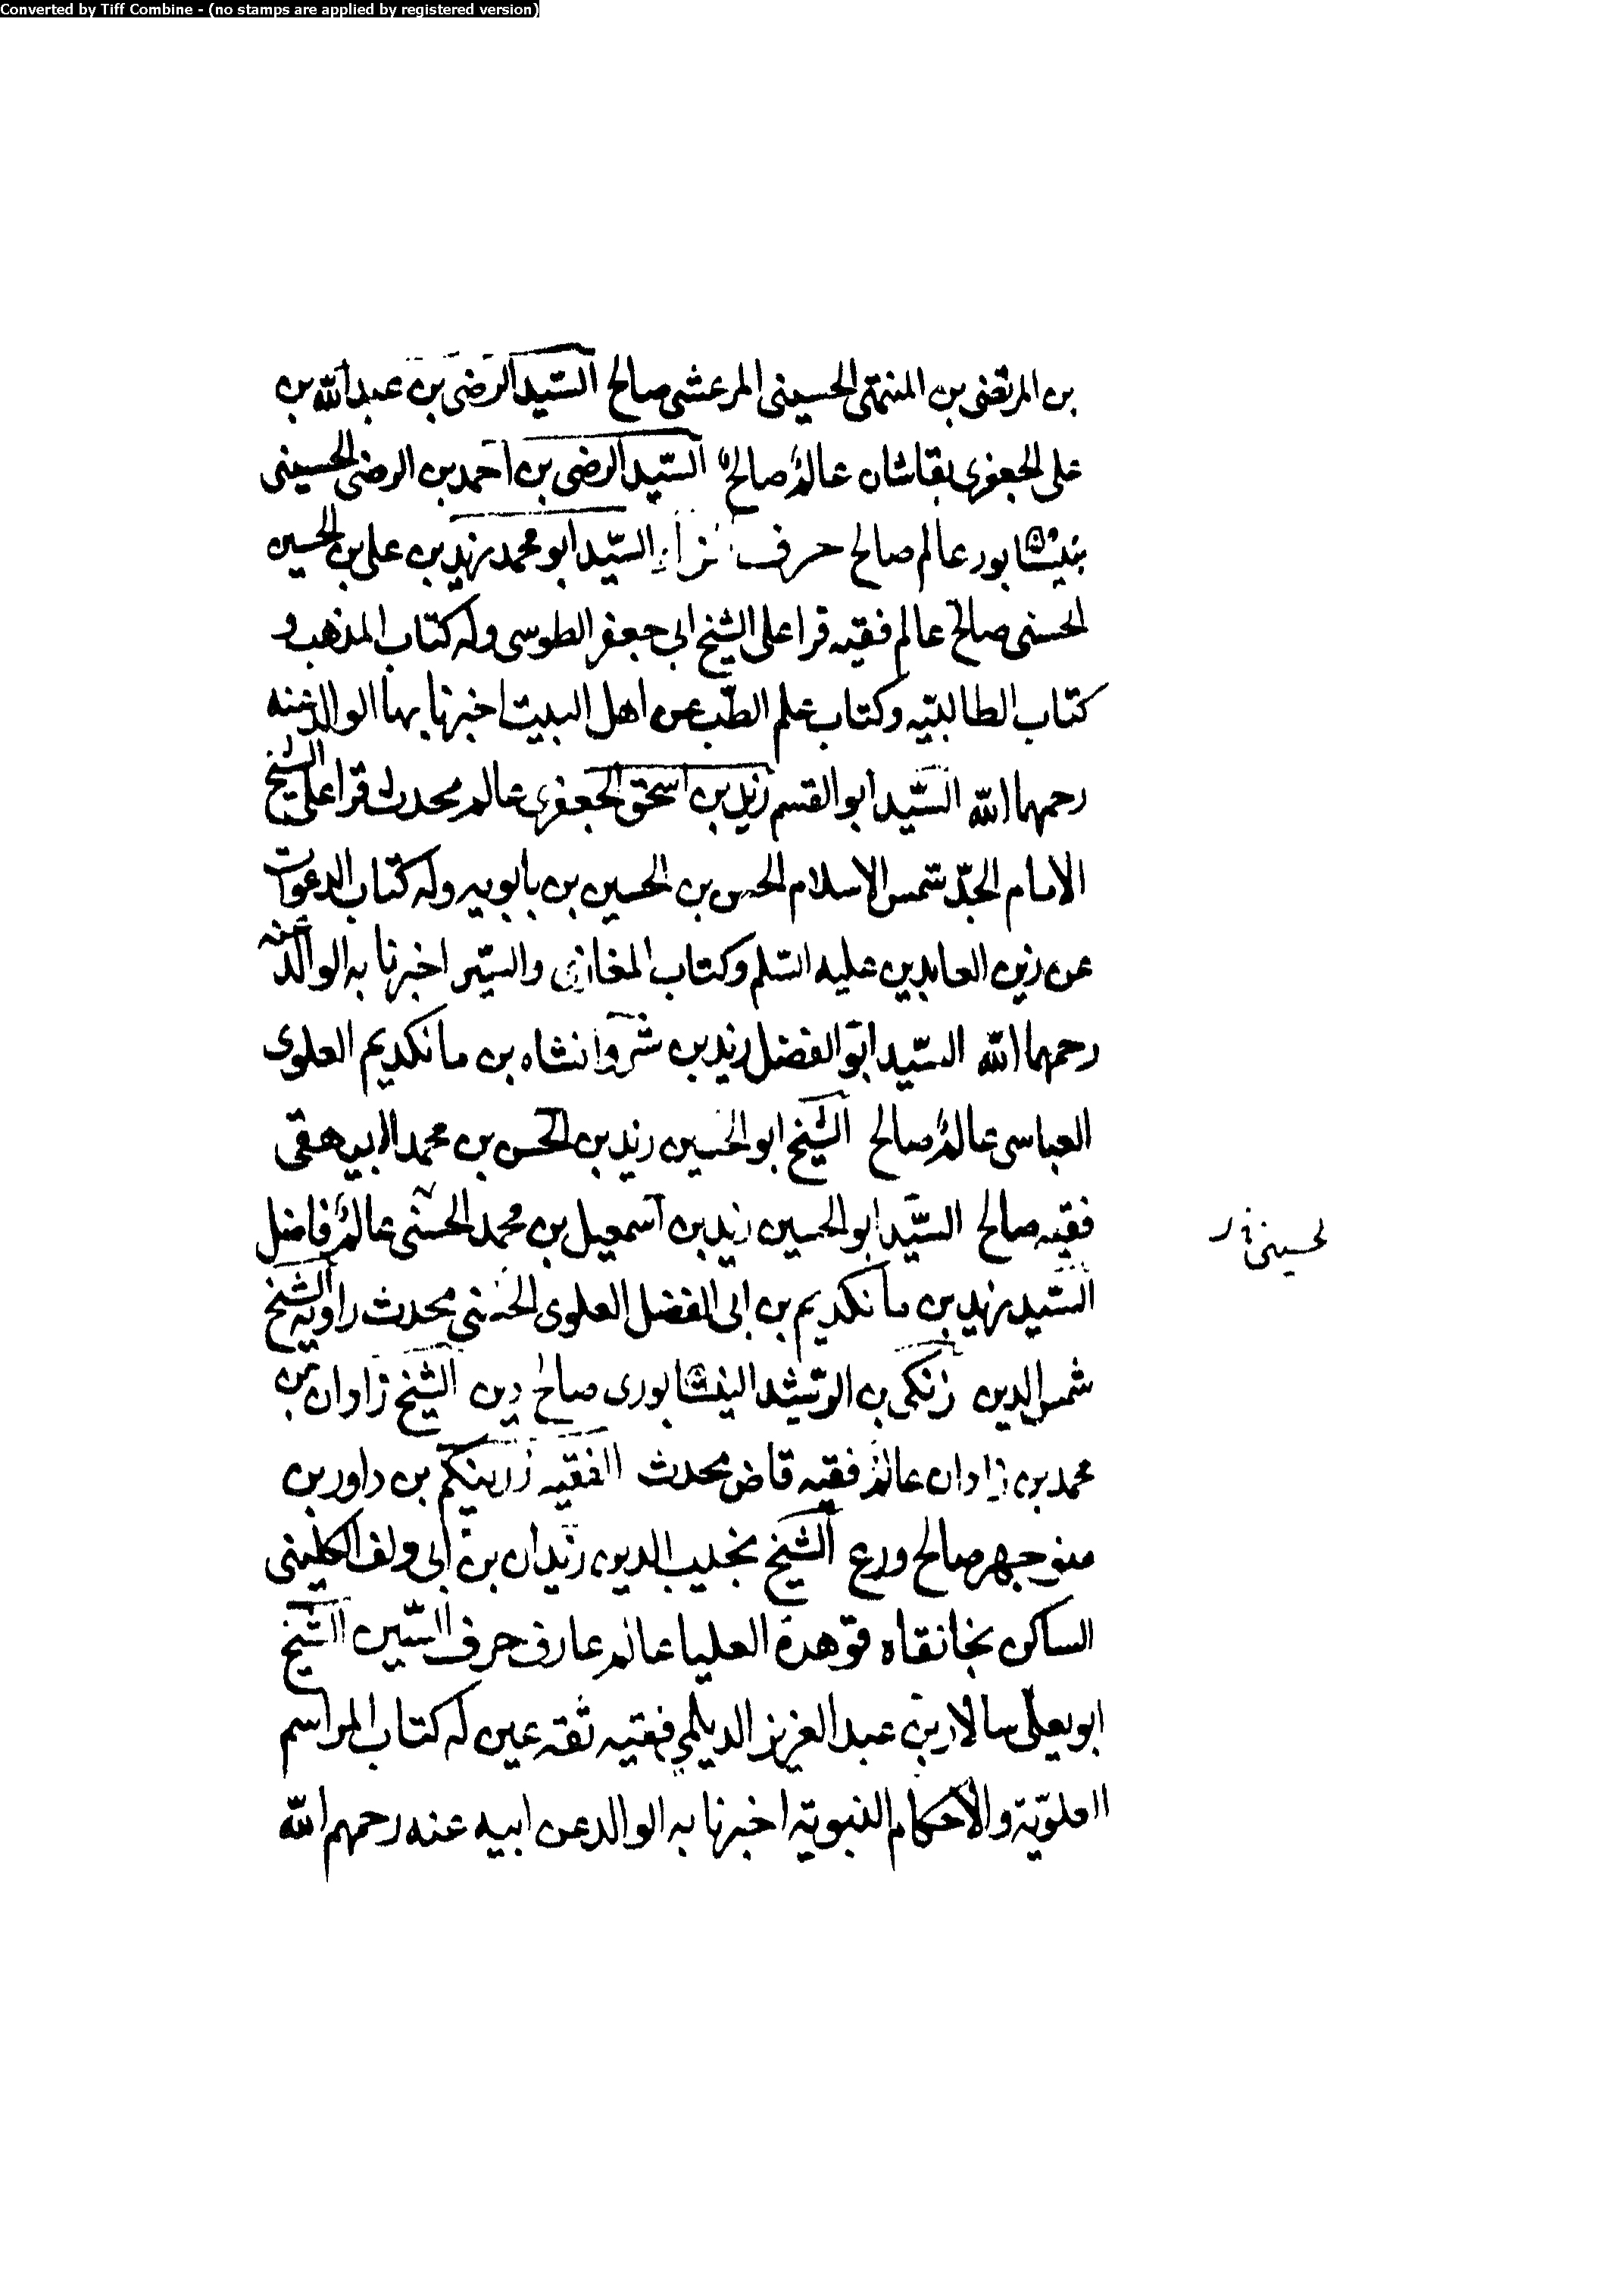 Converted by Tiff Combine - (no stamps are applied by registered version)
بن المرتضى بن المنتهى الحسينى المرعشى صالح السّيد الرضى بن عبد الله بن
على الجعفرى بقاشان عالم صالح السّيد الرضى بن احمد بن الرضى الحسينى
بنيشابور عالم صالح حرف الزاء السّيد ابو محمد زيد بن على بن الحسين
الحسنى صالح عالم فقيه قرا على الشيخ ابى جعفر الطوسى وله كتاب المذهب و
كتاب الطالبيّه وكتاب علم الطّب عن اهل البيت اخبرنا بها الوالد عنه
رحمهما الله السّيد ابو القسم زيد بن اسحق الجعفرى عالم محدث قرا على الشيخ
الامام الجدّ شمس الاسلام الحسن بن الحسين بن بابويه وله كتاب الدعوات
عن زين العابدين عليه السّلم وكتاب المغازى والسّير اخبرنا به الوالد عنه
رحمهما الله السّيد ابو الفضل زيد بن شروانشاه بن مانكديم العلوى
العباسى عالم صالح الشيخ ابو الحسين زيد بن الحسن بن محمد البيهقى
فقيه صالح السّيد ابو الحسين زيد بن اسمعيل بن محمد الحسنى عالم فاضل
لحسينى
السّيد زيد بن مانكديم بن ابى الفضل العلوى الحسنى محدث راويه الشيخ
شمس الدين زنكى بن الرّشيد النيشابورى صالح دين الشيخ زادان بن
محمد بن زادان عالم فقيه قاض محدث الفقيه زرينكم بن داور بن
منوجهر صالح ورع الشيخ نجيب الدين زيدان بن ابى دلف الكلينى
الساكن بخانقاه قوهدة العليا عالم عارف حرف السّين الشيخ
ابو يعلى سالار بن عبد العزيز الديلمي فقيه ثقه عين له كتاب المراسم
العلويّة والأحكام النبويّة اخبرنا به الوالد عن ابيه عنه رحمهم الله